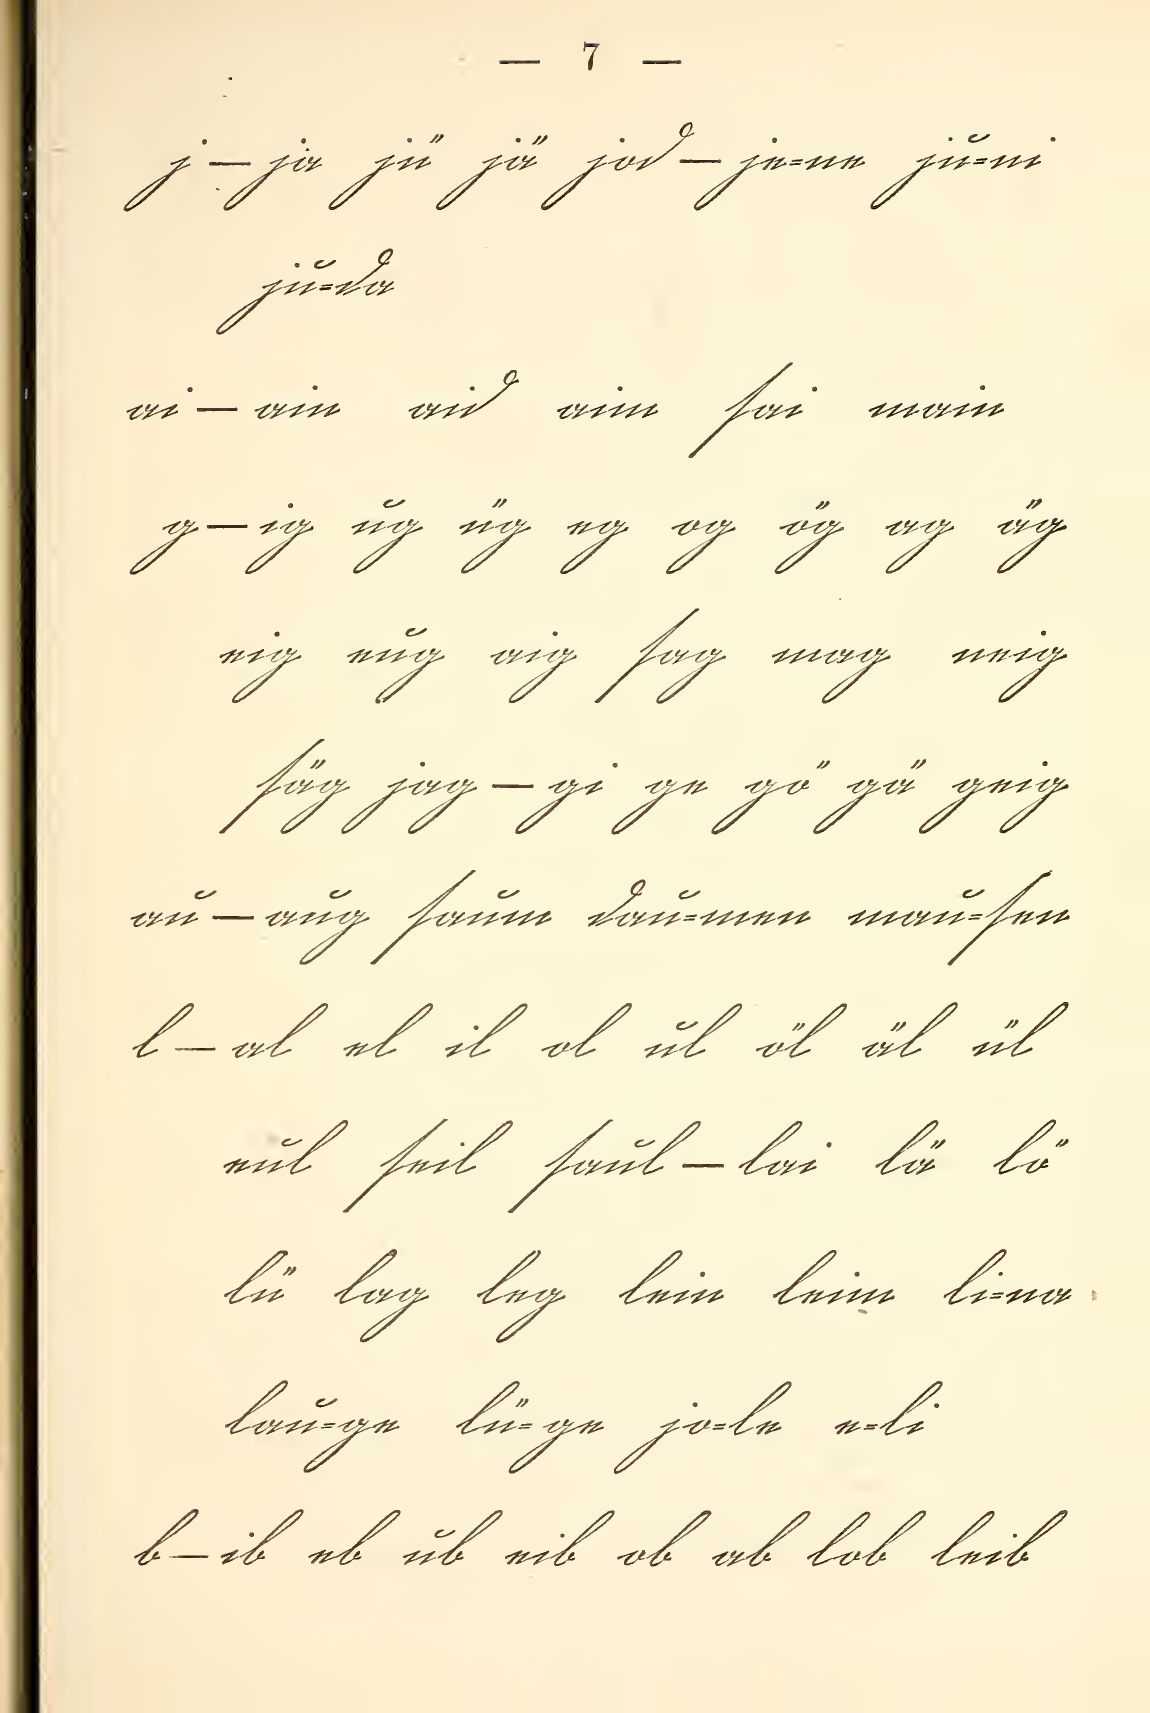 — 7 —
j — ja jü jä jod — je=ne ju=ni
ju=da
ai — ain aid aim sai main
g — ig ug üg eg og ög ag äg
eig eug aig sag mag neig
säg jag — gi ge gö gä geig
au — aug saum dau=men mau=sen
l — al el il ol ul öl äl ül
eul seil saul — lai lä lö
lü lag leg lein leim li=na
lau=ge lü=ge jo=le e=li
b — ib eb ub eib ob ab lob leib